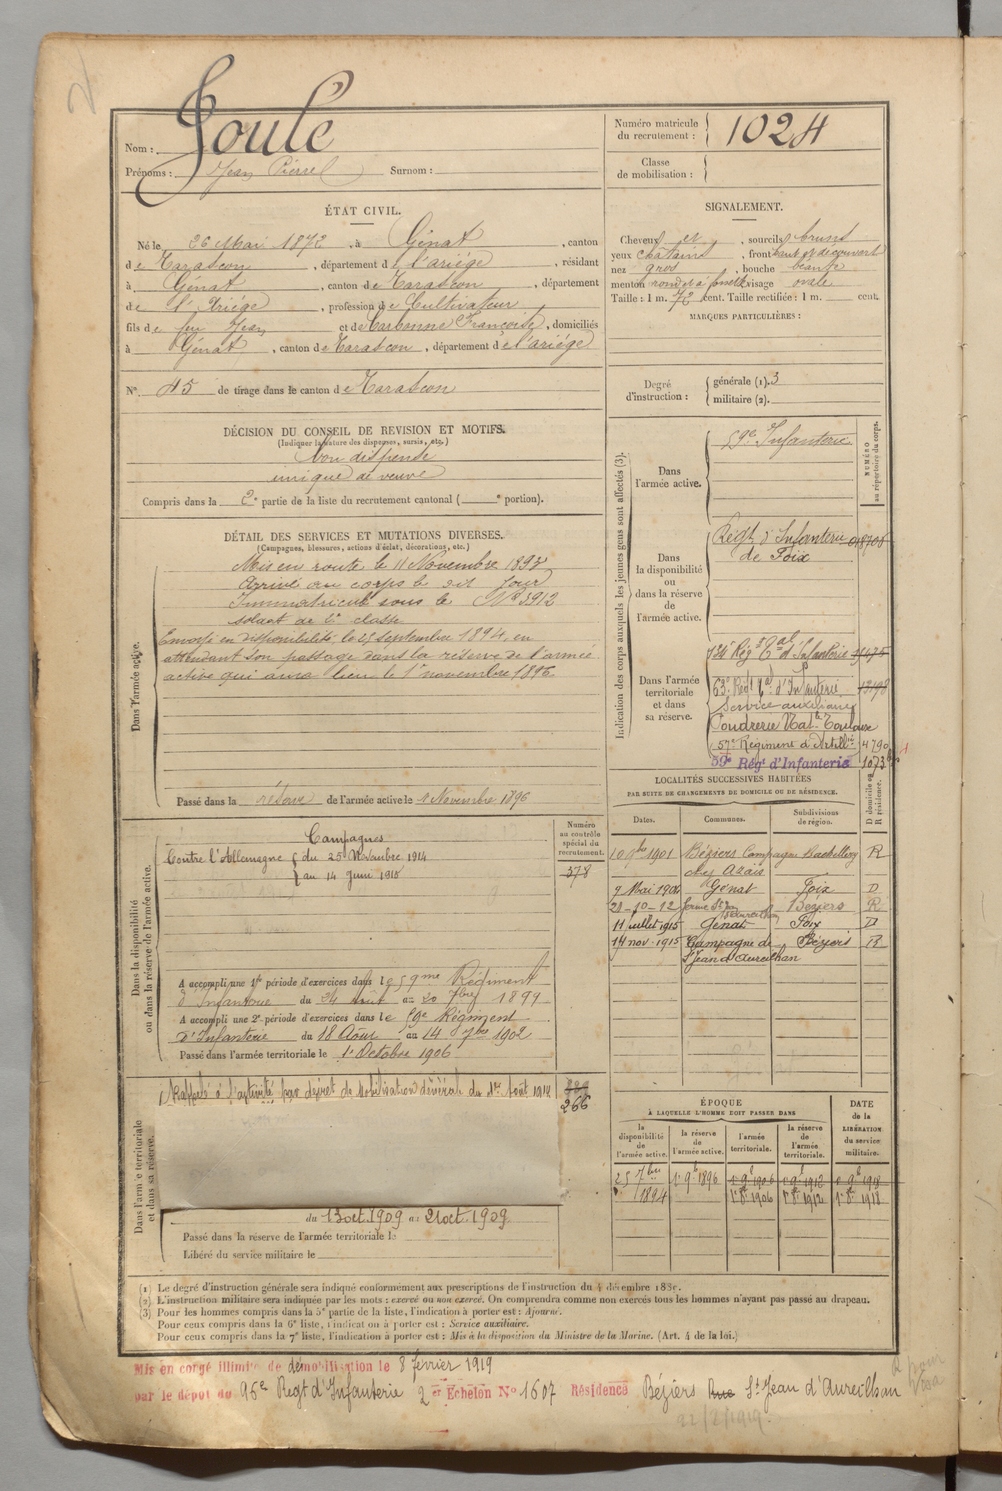 Nom : Soulé
Prénoms : Jean Pierre Surnom :
Numéro matricule du recrutement : 1024
Classe de mobilisation :
ÉTAT CIVIL.
Né le 26 Mai 1872, à Génat, canton
de Tarascon, département de l'ariége, résidant
à Génat, canton de Tarascon, département
de l'Ariége, profession de Cultivateur
fils de feu Jean et de Carbonne Françoise, domiciliés
à Génat, canton de Tarascon, département de l'ariége
N° 45 de tirage dans le canton de Tarascon
SIGNALEMENT.
Cheveux et, sourcils bruns
yeux chatains, front haut et découvert
nez gros, bouche béante
menton rond et à fossette visage ovale
Taille : 1 m. 72 cent. Taille rectifiée : 1 m. cent.
MARQUES PARTICULIÈRES :
Degré d'instruction : générale (1). 3
militaire (2).
DÉCISION DU CONSEIL DE REVISION ET MOTIFS.
(Indiquer la nature des dispenses, sursis, etc.)
bon dispensé
unique de veuve
Compris dans la 2e partie de la liste du recrutement cantonal ( e portion).
DÉTAIL DES SERVICES ET MUTATIONS DIVERSES.
(Campagnes, blessures, actions d'éclat, décorations, etc.)
Dans l'armée active.
Mis en route le 11 Novembre 1893
Arrivé au corps le dit jour
Immatriculé sous le N° 3912
soldat de 2e classe
Envoyé en disponibilité le 25 septembre 1894, en
attendant son passage dans la réserve de l'armée
active qui aura lieu le 1er novembre 1896
Passé dans la réserve de l'armée active le 1 Novembre 1896
Indication des corps auxquels les jeunes gens sont affectés (3).
NUMÉRO au répertoire du corps.
Dans l'armée active.
59e Infanterie
Dans la disponibilité ou dans la réserve de l'armée active.
Régt d'Infanterie
de Foix
Dans l'armée territoriale et dans sa réserve.
134e Régt Tal d'Infanterie
63e Régt Tal d'Infanterie 13198
Service auxiliaire
Poudrerie Nat.le Toulouse
57e Régiment d'Artille 4790
59e Régt d'Infanterie 1073
LOCALITÉS SUCCESSIVES HABITÉES
PAR SUITE DE CHANGEMENTS DE DOMICILE OU DE RÉSIDENCE.
Dates. Communes. Subdivisions de région. D domicile ou R résidence.
10 9bre 1901 Béziers Campagne Bachellery R
chez Azaïs
9 Mai 1904 Génat Foix D
21-10-12 ferme St Jean d'Aureilhan Béziers R
11 juillet 1915 Génat Foix D
14 nov. 1915 Campagne de St Jean d'Aureilhan Béziers R
Dans la disponibilité ou dans la réserve de l'armée active.
Numéro au contrôle spécial du recrutement.
378
Campagnes
Contre l'Allemagne du 25 Novembre 1914
au 14 Juin 1915
A accompli une 1re période d'exercices dans le 59me Régiment
d'Infanterie du 24 Août au 20 7bre 1899
A accompli une 2e période d'exercices dans le 59e Régiment
d'Infanterie du 18 Août au 14 7bre 1902
Passé dans l'armée territoriale le 1er Octobre 1906
Dans l'armée territoriale et dans sa réserve.
Rappelé à l'activité par décret de Mobilisation Générale du 1er Août 1914
266
du 13 oct. 1909 au 21 oct. 1909
Passé dans la réserve de l'armée territoriale le
Libéré du service militaire le
ÉPOQUE
À LAQUELLE L'HOMME DOIT PASSER DANS
DATE de la LIBÉRATION du service militaire.
la disponibilité de l'armée active. la réserve de l'armée active. l'armée territoriale. la réserve de l'armée territoriale.
25 7bre 1894 1er 9b 1896 1er 9b 1906 1er 9b 1912 1er 9b 1918
1er 8b 1906 1er 8b 1912 1er 8b 1918
(1) Le degré d'instruction générale sera indiqué conformément aux prescriptions de l'instruction du 4 décembre 1889.
(2) L'instruction militaire sera indiquée par les mots : exercé ou non exercé. On comprendra comme non exercés tous les hommes n'ayant pas passé au drapeau.
(3) Pour les hommes compris dans la 5e partie de la liste, l'indication à porter est : Ajourné.
Pour ceux compris dans la 6e liste, l'indication à porter est : Service auxiliaire.
Pour ceux compris dans la 7e liste, l'indication à porter est : Mis à la disposition du Ministre de la Marine. (Art. 4 de la loi.)
Mis en congé illimité de démobilisation le 8 février 1919
par le dépôt du 96e Regt d'Infanterie 2er Echelon N° 1607 Résidence Béziers Rue St Jean d'Aureilhan
22/2/1919